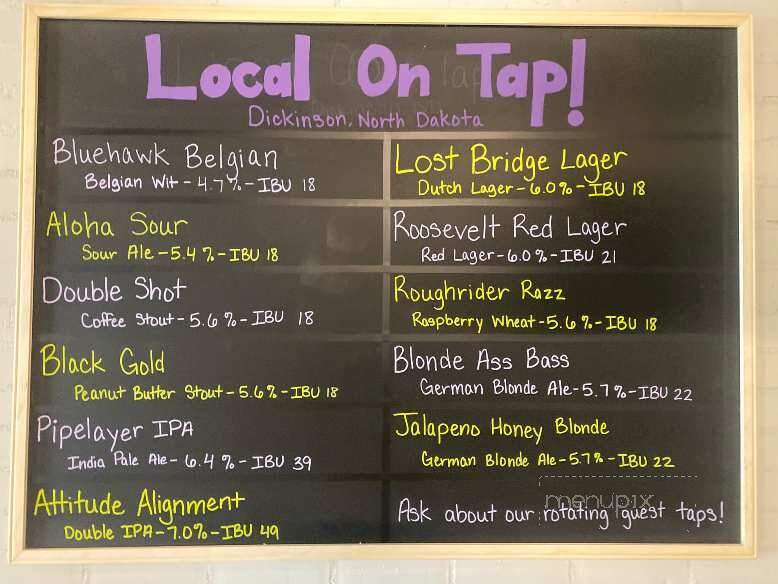 Local On Tap!
Dickinson, North Dakota
Bluehawk Belgian
Belgian Wit - 4.7% - IBU 18
Aloha Sour
Sour Ale - 5.4 % - IBU 18
Double Shot
Coffee Stout - 5.6 % - IBU 18
Black Gold
Peanut Butter Stout - 5.6% - IBU 18
Pipelayer IPA
India Pale Ale - 6.4 % - IBU 39
Attitude Alignment
Double IPA - 7.0% - IBU 49
Lost Bridge Lager
Dutch Lager - 6.0% - IBU 18
Roosevelt Red Lager
Red Lager - 6.0% - IBU 21
Roughrider Razz
Raspberry Wheat - 5.6 % - IBU 18
Blonde Ass Bass
German Blonde Ale - 5.7% - IBU 22
Jalapeno Honey Blonde
German Blonde Ale - 5.7% - IBU 22
Ask about our rotating guest taps!
menupix